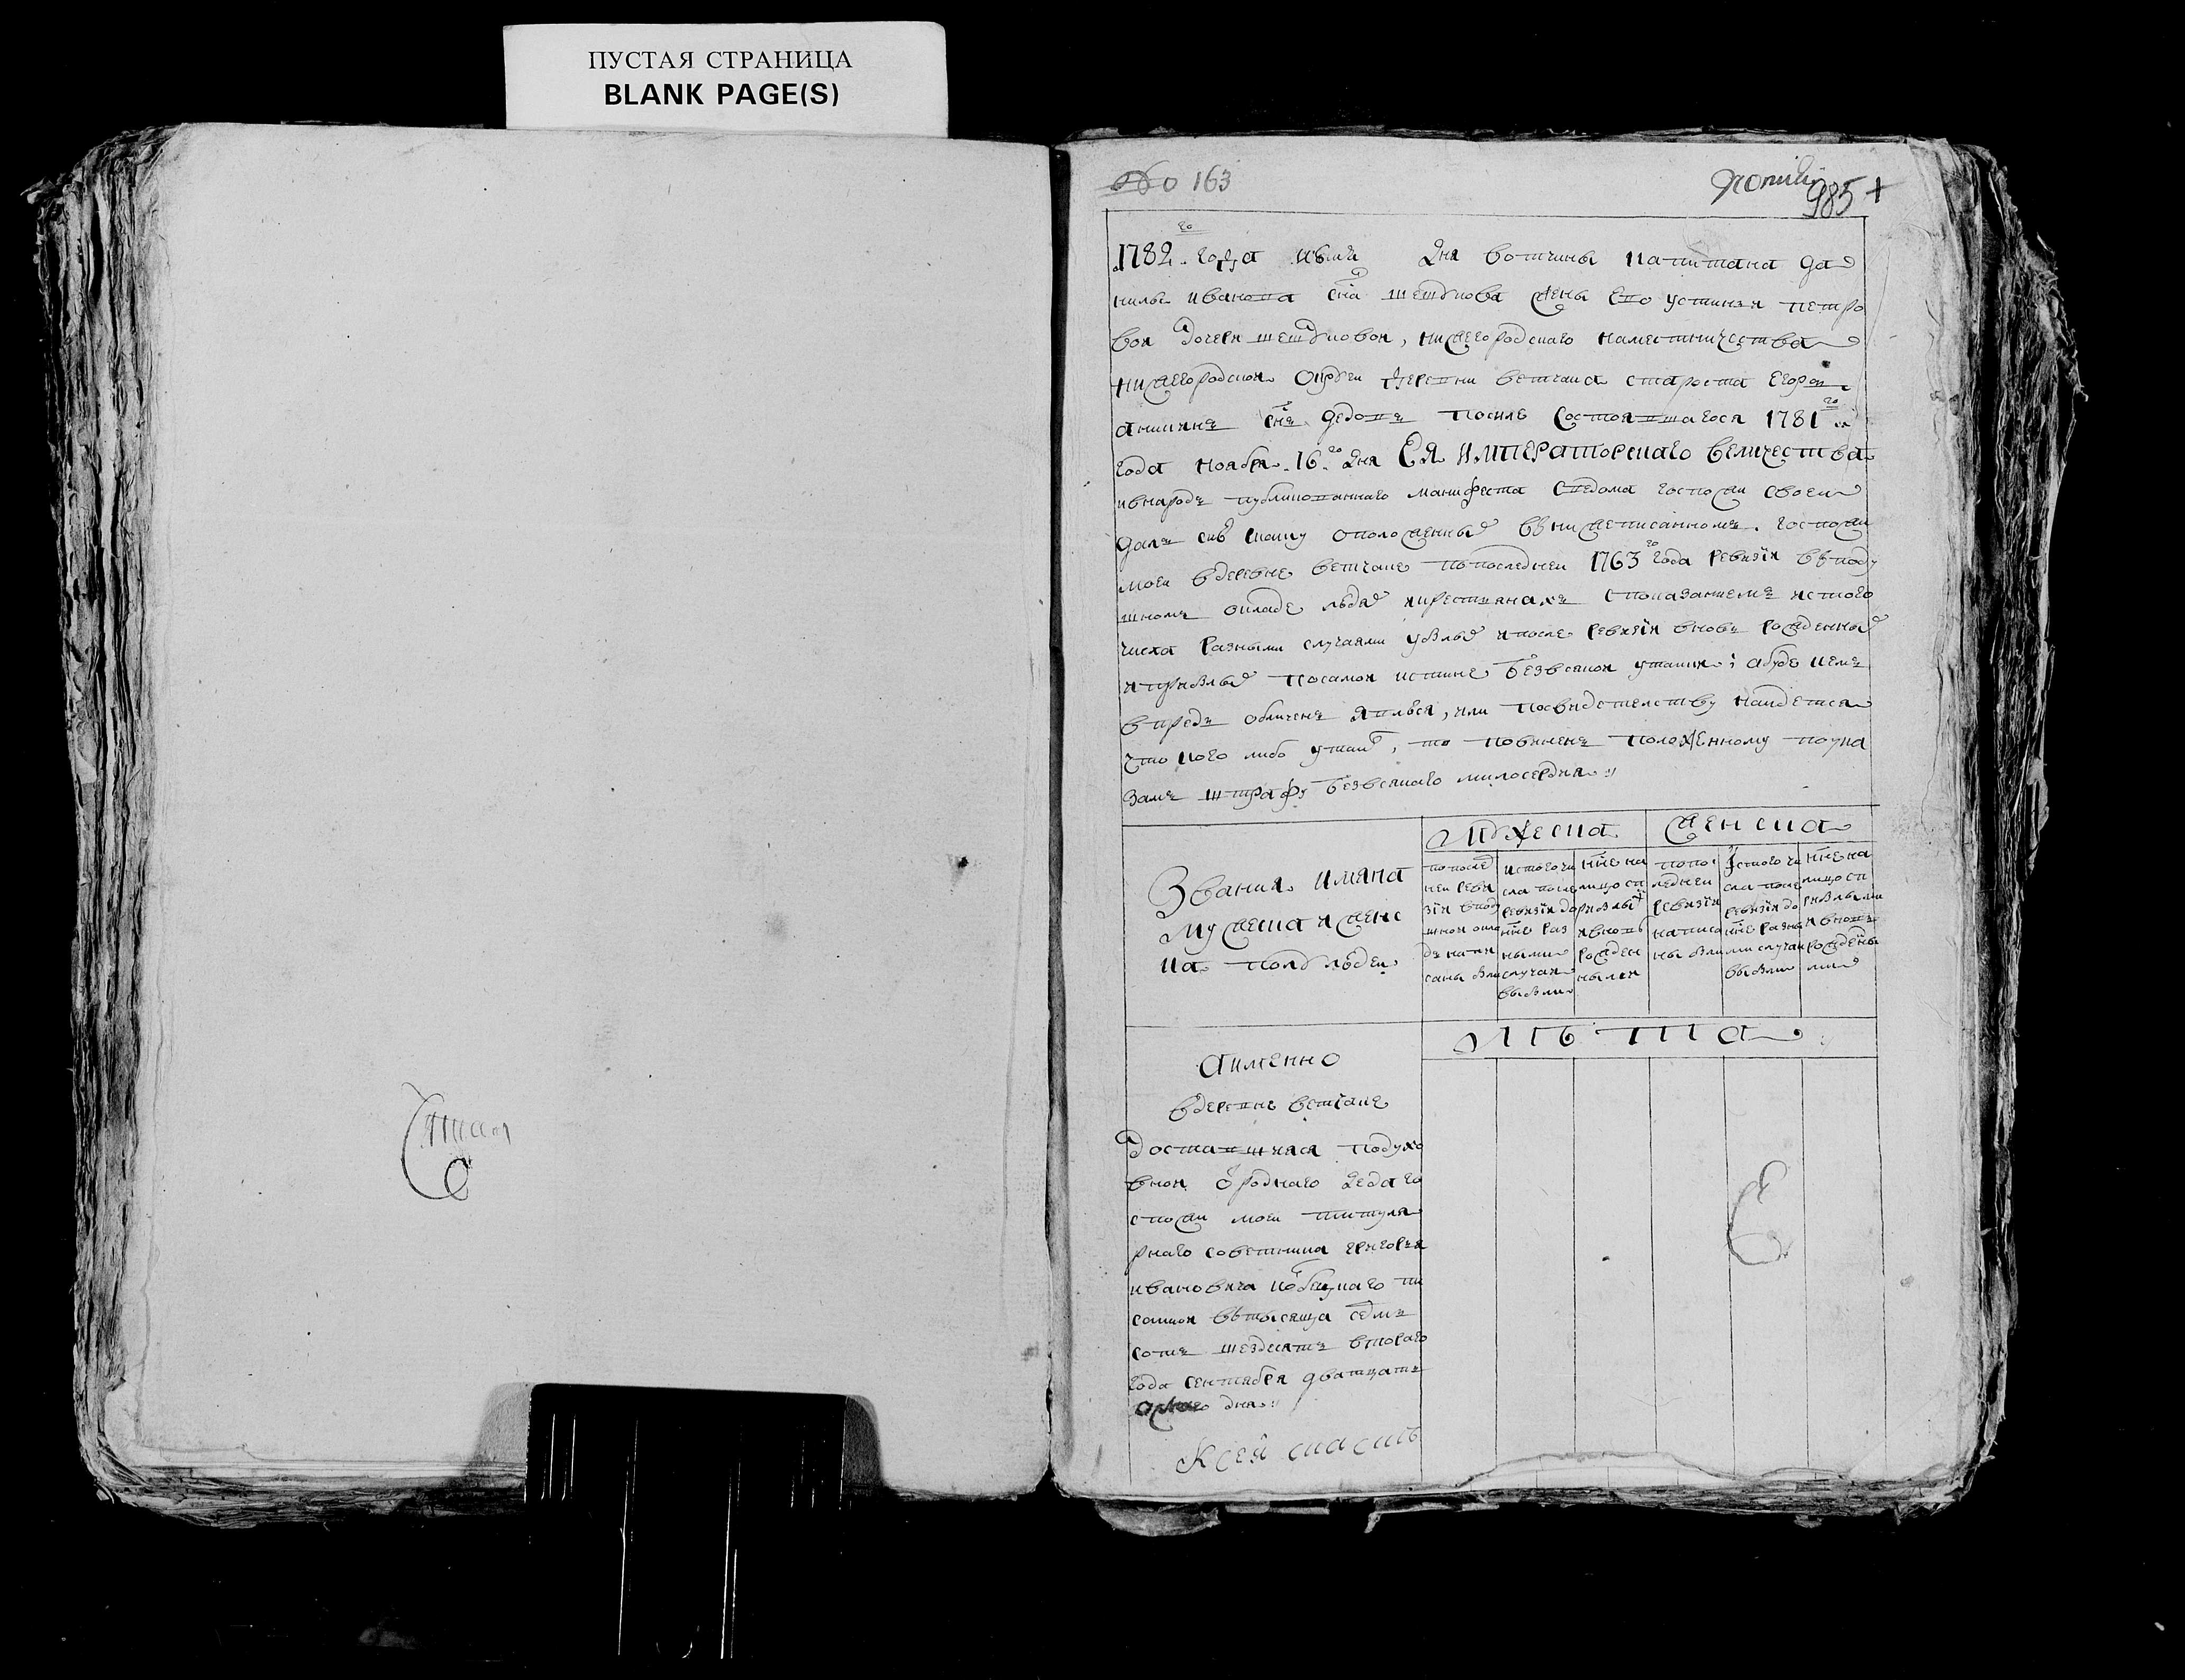 ПУСТАЯ СТРАНИЦА
BLANK PAGE(S)
№ 163
985 +
1782го года июля дня вотчины капитана да
нилы иванова сна шешукова жены ево устиньи петро
вой дочери шешуковой, нижегородскаго наместничества
нижегородской округи деревни ветчака староста егор
аникин снъ дедовъ посиле состоявшагося 1781го
года ноября 16го дня Ея ИМПЕРАТОРСКАГО Величества
и внародъ публикованнаго манифеста сведома госпожи своей
далъ сию скаску оположенных внижеписанномъ госпожи
моей вдеревне ветчаке попоследней 1763го года ревизіи вподу
шномъ окладе людях икрестьянахъ споказаниемъ истого
числа разными случаями убылых ипосле ревизіи вновь рожденных
иприбылых посамой истине безвсякой утайки; абуде чемъ
впредь обличенъ явлюся, или посвидетелству найдется
что кого либо утаил, то повиненъ положенному поука
замъ штрафу безвсякаго милосердия
Мужеска Женска
Звания имяна
мужеска и женс
ка полу людей
попослед
ней реви
зіи вподу
шном окла
де напи
саны были
истого чи
сла после
ревизіи до
нне раз
ными
случаи
выбыли
нне на
лицо сп
рибылы
ивновь
рожден
ными
попос
ледней
ревизіи
написа
ны были
истого чи
сла после
ревизіи до
нне разны
ми случаи
выбыли
нне на
лицо сп
рибылыми
ивновь
рожденны
ми
Лѣта
Аименно
вдеревне ветчаке
доставшияся подухо
вной от роднаго деда го
спожи моей титуля
рнаго советника григорья
ивановича пи
санной втысяща седмъ
сотъ шездесятъ втораго
года сентября дватцатъ
дня
Ксей скаскѣ